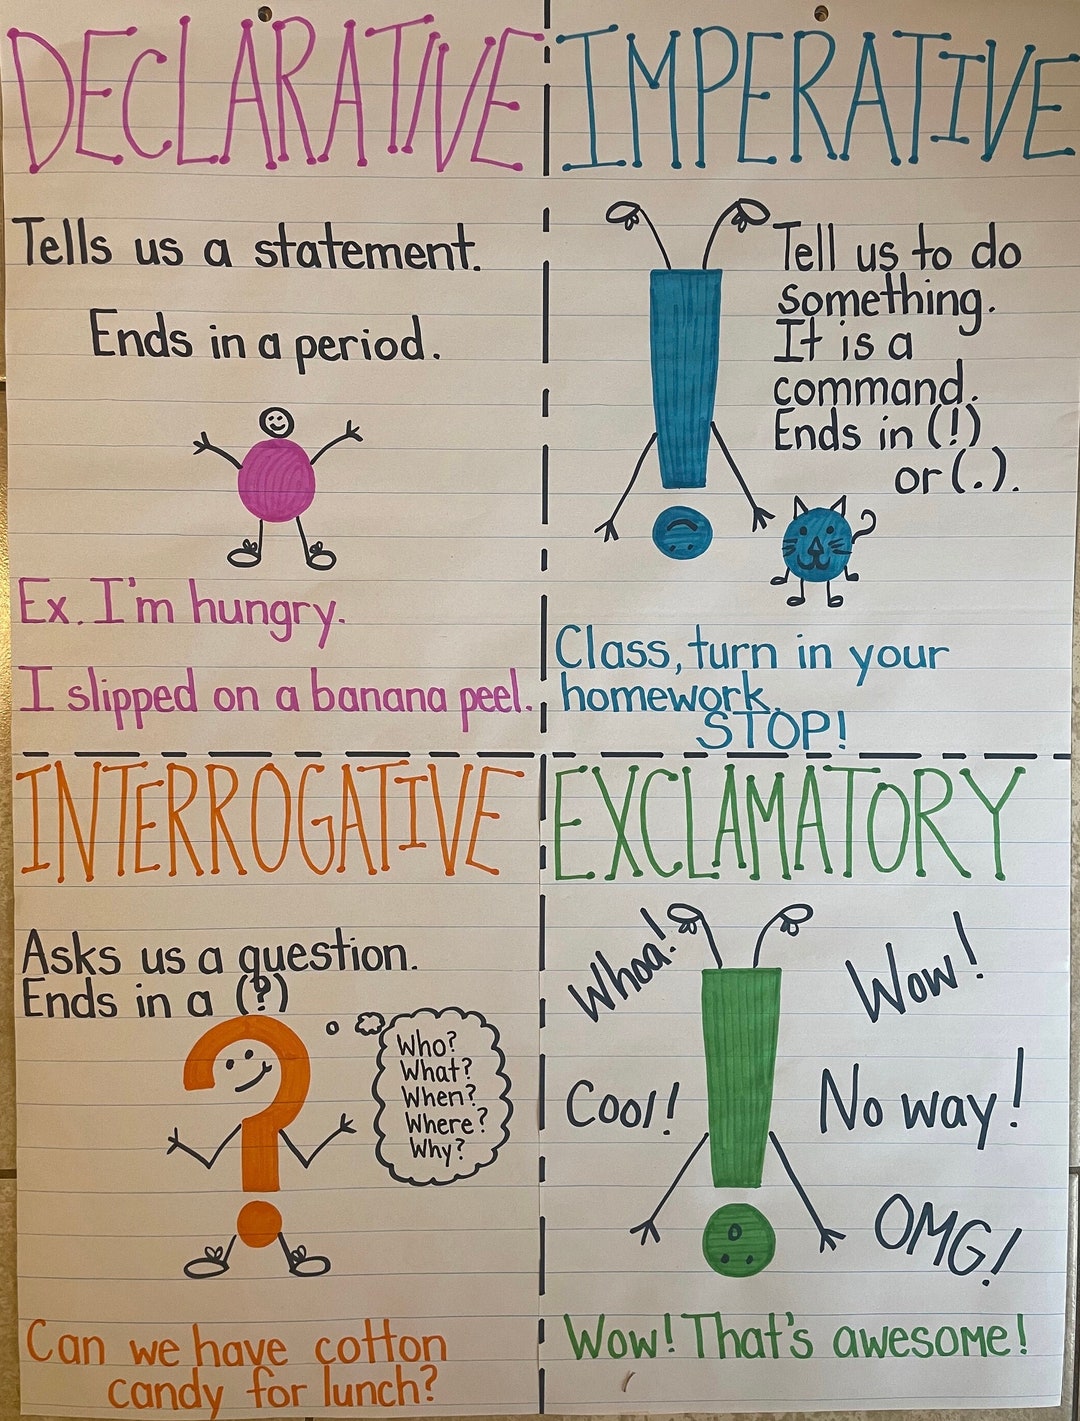 DECLARATIVE
Tells us a statement.
Ends in a period.
Ex. I'm hungry.
I slipped on a banana peel.
IMPERATIVE
Tell us to do
something.
It is a
command.
Ends in (!)
or (.).
Class, turn in your
homework.
STOP!
INTERROGATIVE
Asks us a question.
Ends in a (?)
Who?
What?
When?
Where?
Why?
Can we have cotton
candy for lunch?
EXCLAMATORY
Whoa!
Wow!
Cool!
No way!
OMG!
Wow! That's awesome!